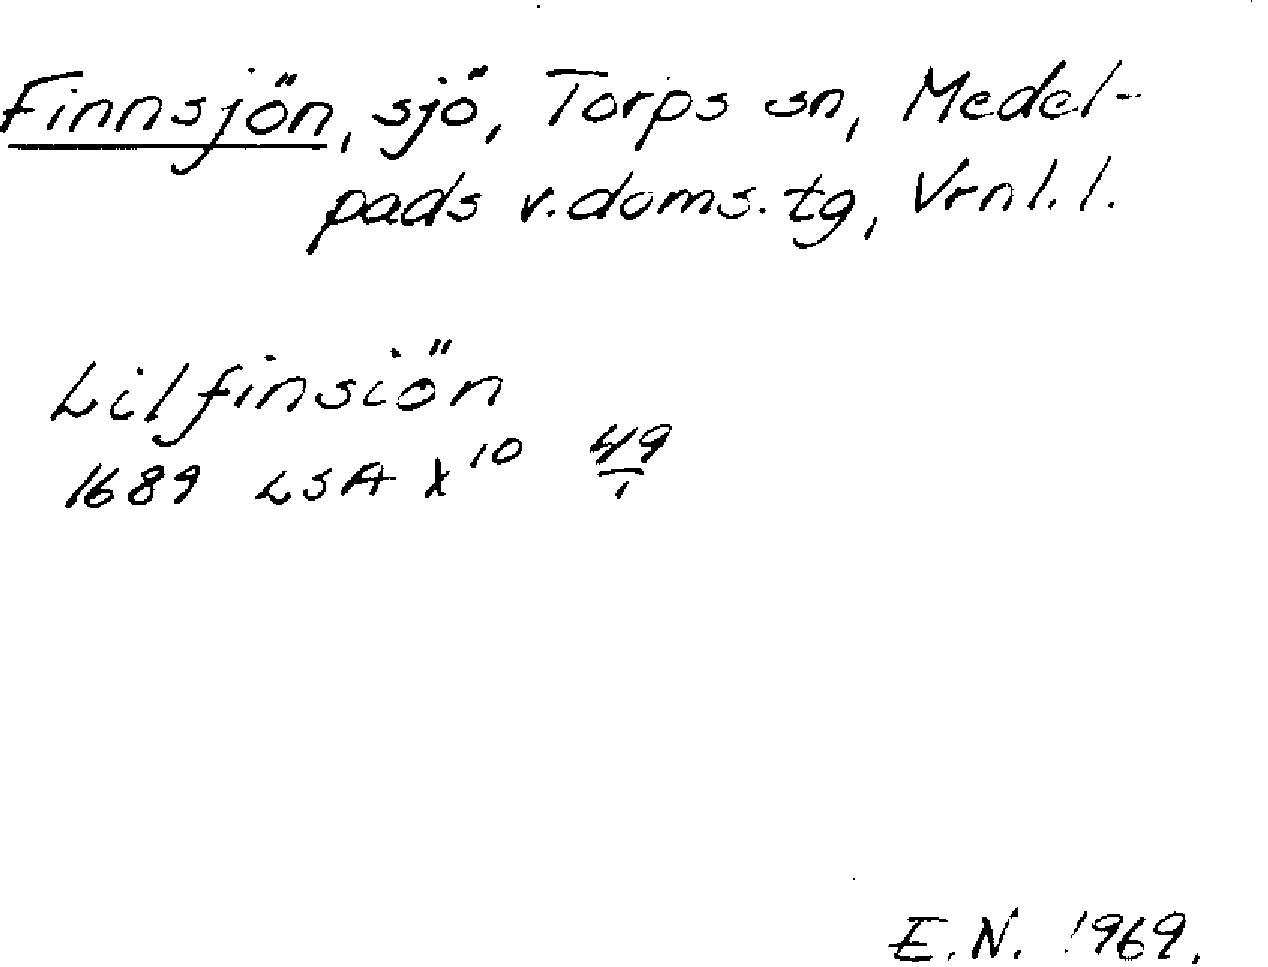 Finnsjön, sjö, Torps sn, Medel-
pads v.doms.tg, Vrnl.l.
Lilfinsiön
1689 LSA X¹⁰ 49/1
E.N. 1969.